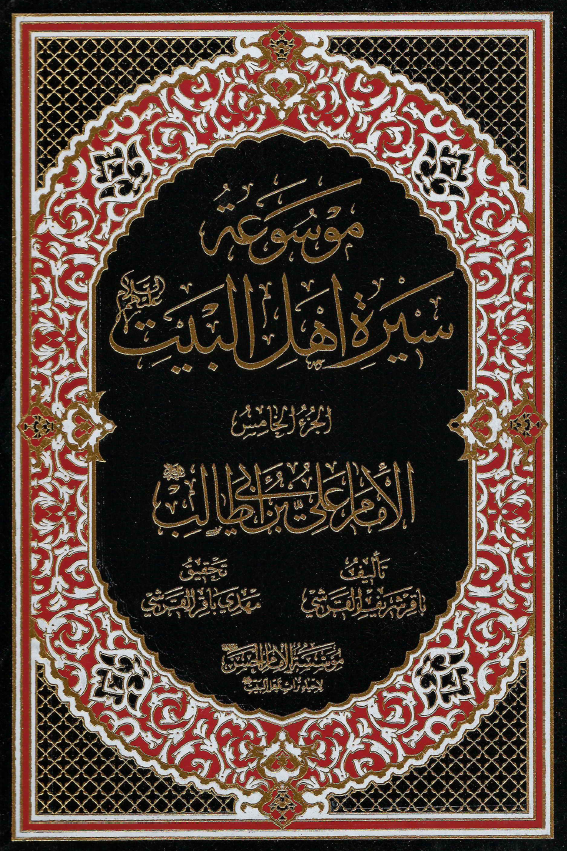 مَوْسُوعَةُ
سِيرَةِ أَهْلِ الْبَيْتِ عليهم السلام
الجُزْءُ الخَامِسُ
الإمام علي بن أبي طالب
تَأليفُ
باقر شريف القرشي
تَحقيقُ
مهدي باقر القرشي
مؤسسة الإمام الحسن
لإحياء تراث أهل البيت